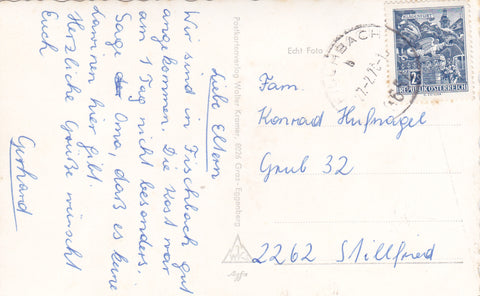 Liebe Eltern
Wir sind in Fischbach gut
angekommen. Die Kost war
am 1 Tag nicht besonders.
Sage der Oma, daß es keine
daminen hier gibt.
Herzliche Grüße wünscht
Euch
Gerhard
Postkartenverlag Walter Kramer, 8026 Graz-Eggenberg
Echt Foto
KLAGENFURT
2 S
REPUBLIK ÖSTERREICH
Fam.
Konrad Hufnagel
Grub 32
2262 Stillfried
WK